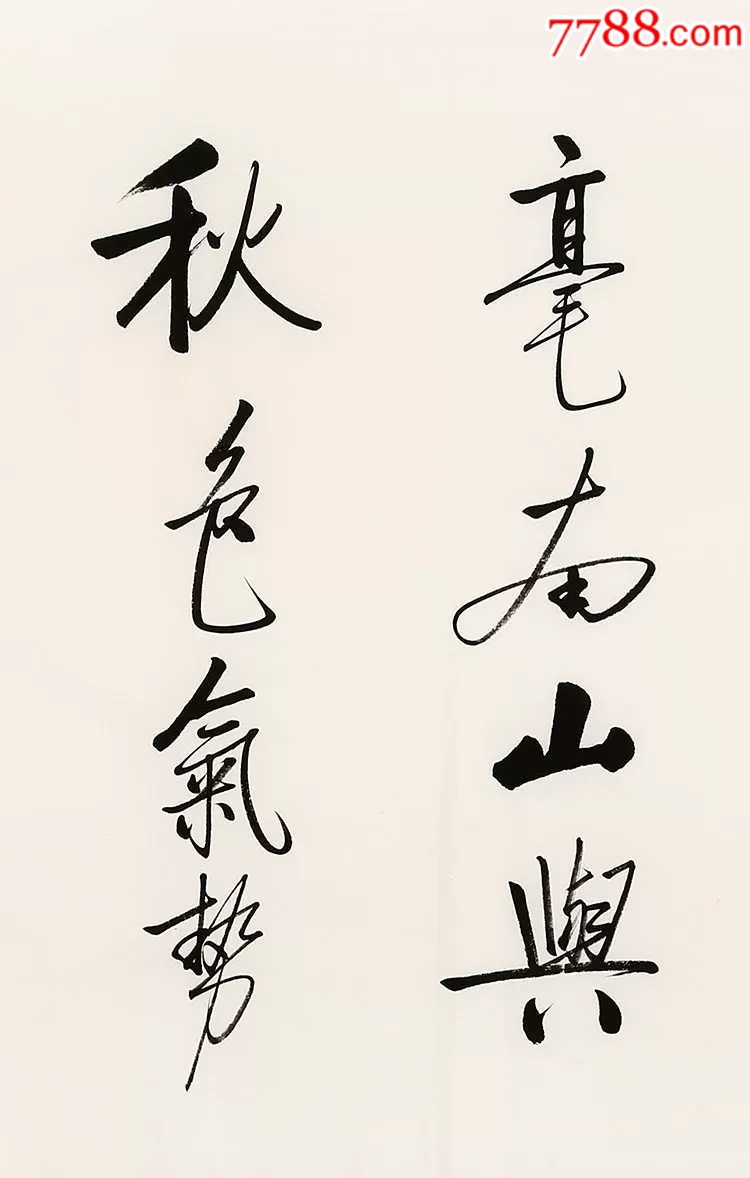 7788.com
毫南山與
秋色氣勢